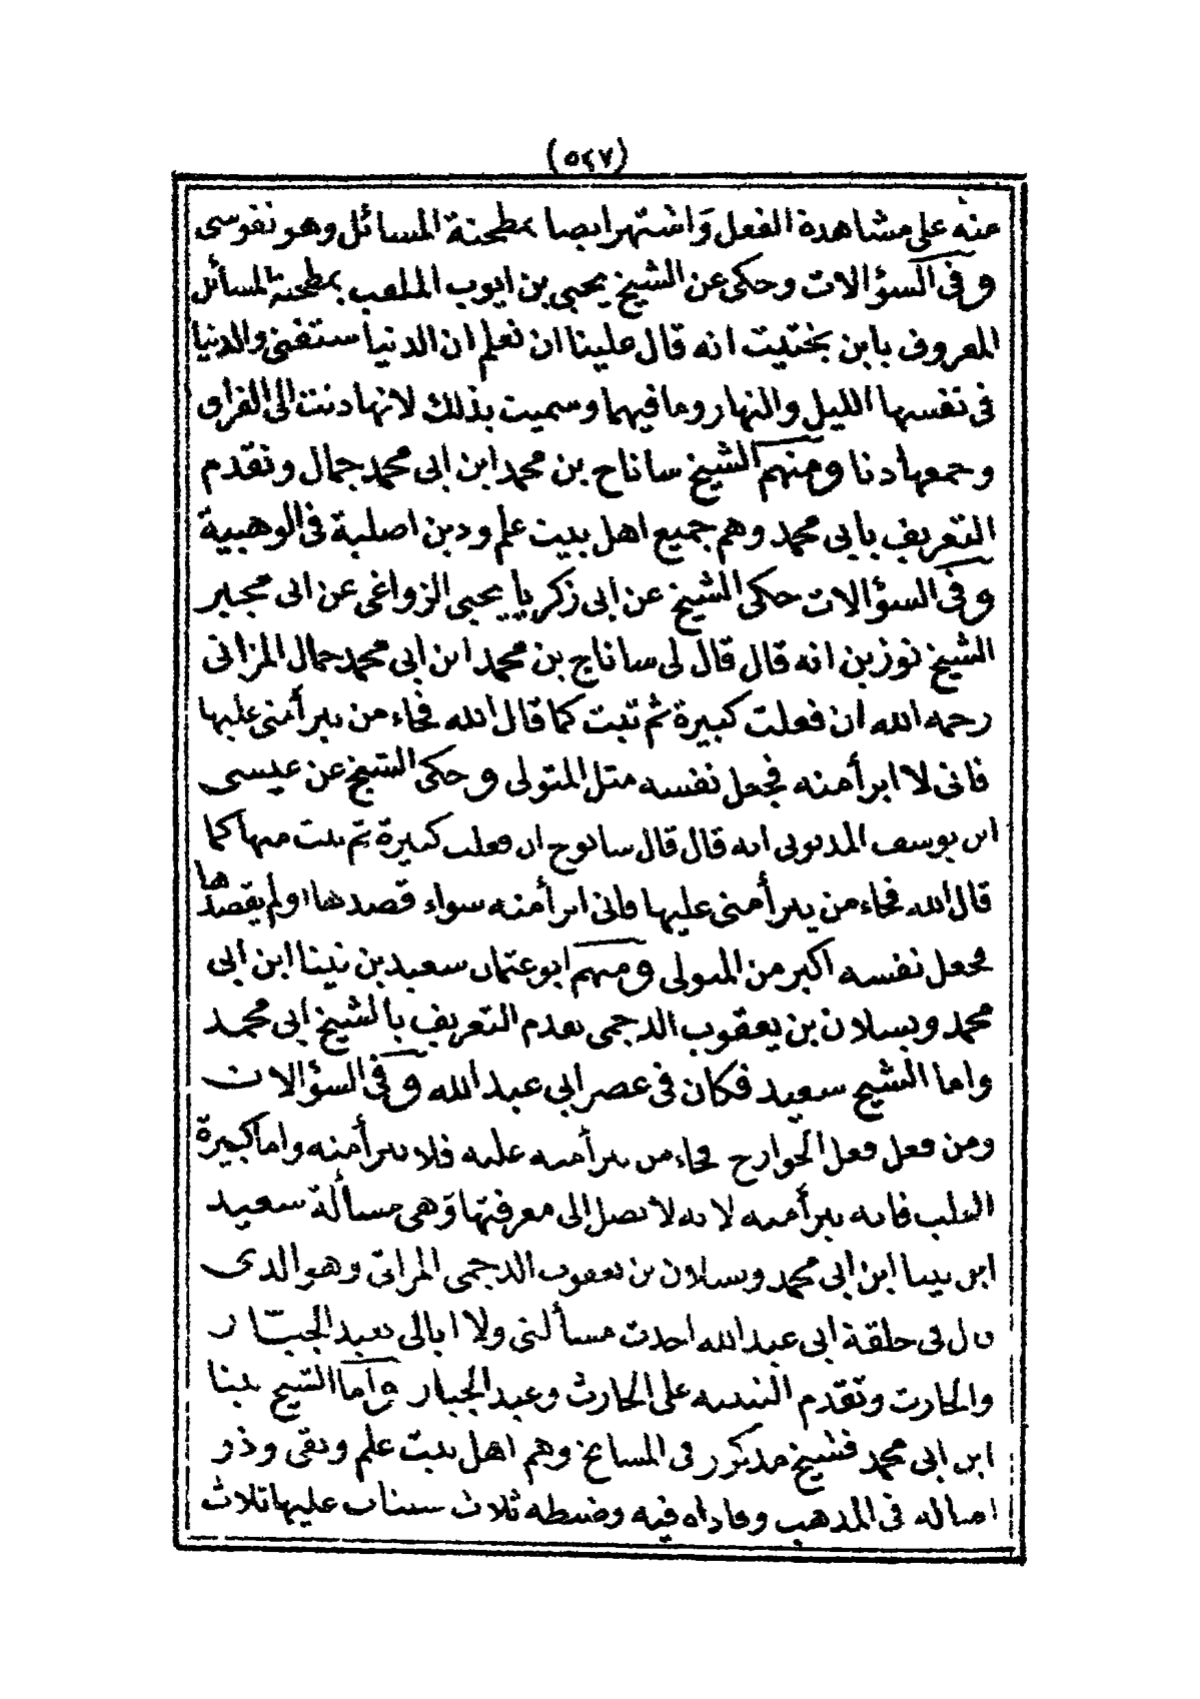 (٥٢٧)
عنه على مشاهدة الفعل واشتهر ايضا بمطحنة المسائل وهو نفوسى
وفى السؤالات وحكى عن الشيخ يحيى بن ايوب الملقب بمطحنة المسائل
المعروف بابن يختيت انه قال علينا ان نعلم ان الدنيا ستفنى والدنيا
فى نفسها الليل والنهار وما فيهما وسميت بذلك لانها دنت الى الفراق
وجمعها دنا ومنهم الشيخ ساناح بن محمد ابن ابى محمد جمال وتقدم
التعريف بابى محمد وهم جميع اهل بيت علم ودين اصلية فى الوهبية
وفى السؤالات حكى الشيخ عن ابى زكريا يحيى الزواغى عن ابى مجبر
الشيخ نوزين انه قال قال لى ساناج بن محمد ابن ابى محمد جمال المزاتى
رحمه الله ان فعلت كبيرة ثم تبت كما قال الله فجاء من يبرأ منى عليها
فانى لا ابرأ منه فجعل نفسه مثل المتولى وحكى الشيخ عن عيسى
ابن يوسف المديونى انه قال قال سانوح ان فعلت كبيرة ثم تبت منها كما
قال الله فجاء من يبرأ منى عليها فانى ابرأ منه سواء قصدها او لم يقصدها
فجعل نفسه اكبر من المتولى ومنهم ابو عثمان سعيد بن نينا ابن ابى
محمد ويسلان بن يعقوب الدجمى تقدم التعريف بالشيخ ابى محمد
واما الشيخ سعيد فكان فى عصر ابى عبد الله وفى السؤالات
ومن فعل فعل الجوارح فجاء من يبرأ منه عليه فلا يبرأ منه واما كبيرة
القلب فانه يبرأ منه لانه لا يصل الى معرفتها وهى مسألة سعيد
ابن ينيا ابن ابى محمد ويسلان بن يعقوب الدجمى المزاتى وهو الذى
قال فى حلقة ابى عبد الله اخذت مسألتى ولا ابالى بعبد الجبار
والحارث وتقدم التنبيه على الحارث وعبد الجبار واما الشيخ ينيا
ابن ابى محمد فشيخ مذكور فى المشايخ وهم اهل بيت علم وتقى وذو
اصالة فى المذهب فيه وضبطه ثلاث عليها ثلاث